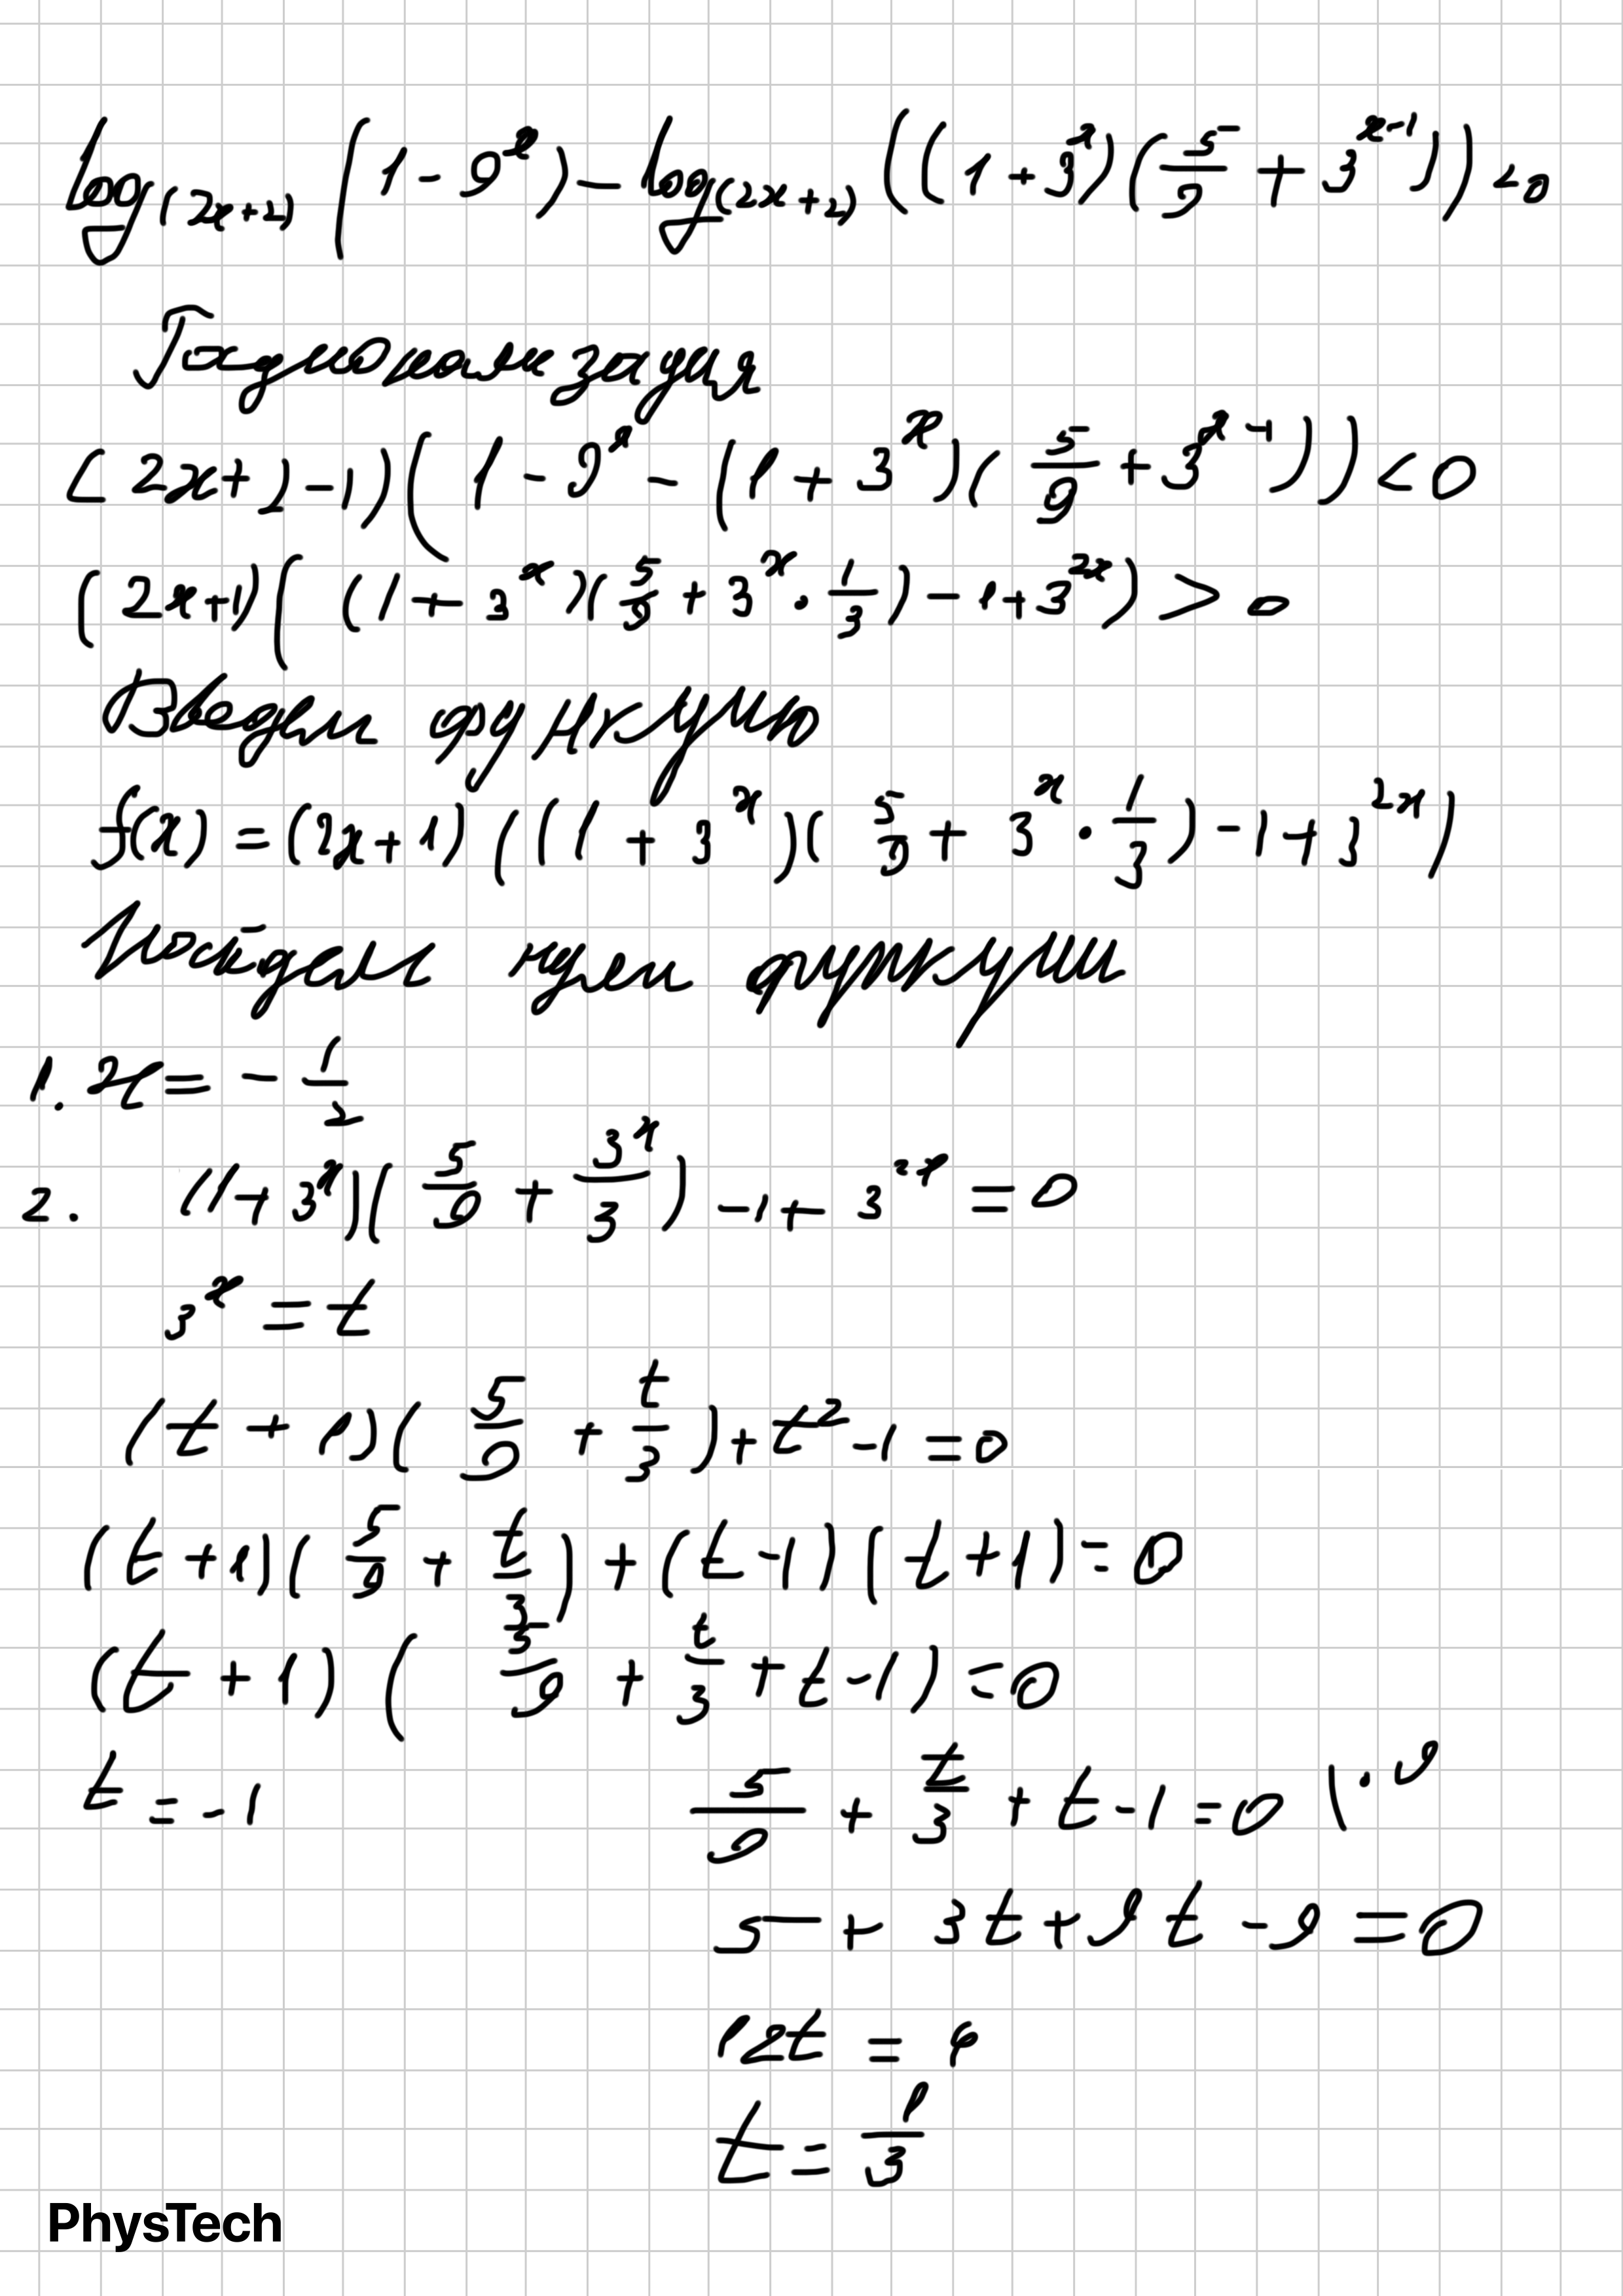 log₍₂ₓ₊₂₎ (1 - 9ˣ) - log₍₂ₓ₊₂₎ ((1 + 3ˣ)(5/9 + 3ˣ⁻¹)) < 0
Рационализация
(2x+2-1)(1 - 9ˣ - (1 + 3ˣ)(5/9 + 3ˣ⁻¹)) < 0
(2x+1)((1 + 3ˣ)(5/9 + 3ˣ · 1/3) - 1 + 3²ˣ) > 0
Введем функцию
f(x) = (2x+1)((1 + 3ˣ)(5/9 + 3ˣ · 1/3) - 1 + 3²ˣ)
Найдем нули функции
1. x = - 1/2
2. (1 + 3ˣ)(5/9 + 3ˣ/3) - 1 + 3²ˣ = 0
3ˣ = t
(t + 1)(5/9 + t/3) + t² - 1 = 0
(t + 1)(5/9 + t/3) + (t - 1)(t + 1) = 0
(t + 1)(5/9 + t/3 + t - 1) = 0
t = -1 5/9 + t/3 + t - 1 = 0 | · 9
5 + 3t + 9t - 9 = 0
12t = 4
t = 1/3
PhysTech